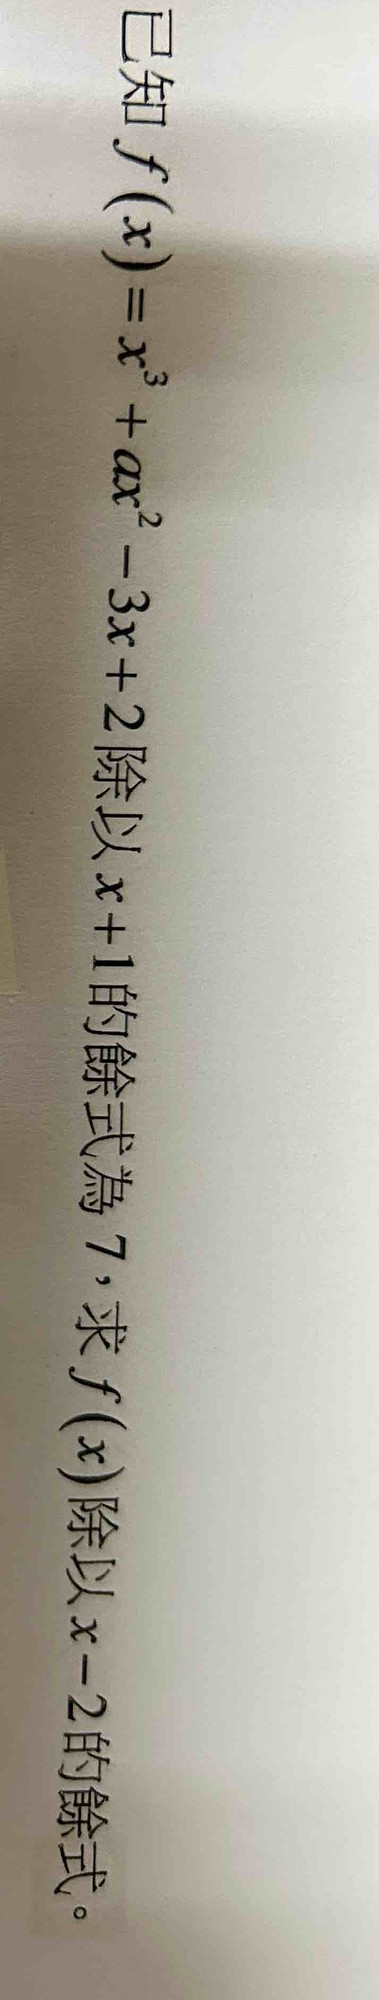 已知 f(x)=x³+ax²−3x+2除以x+1的餘式為7,求f(x)除以x−2的餘式。